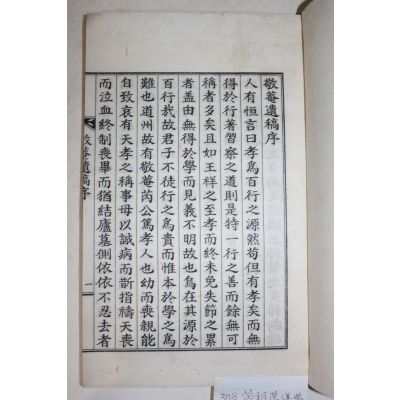 敬菴遺稿序
人有恒言曰孝爲百行之源然苟但有孝矣而無
得於行著習察之道則是特一行之善而餘無可
稱者多矣且如王祥之至孝而終未免失節之累
者盖由無得於學而見義不明故也烏在其源於
百行哉故君子不徒行之爲貴而惟本於學之爲
難也道州故有敬菴芮公篤孝人也幼而喪親能
自致哀有天孝之稱事母以誠病而斷指禱天喪
而泣血終制喪畢而猶結廬墓側依依不忍去者
敬菴遺稿序
一